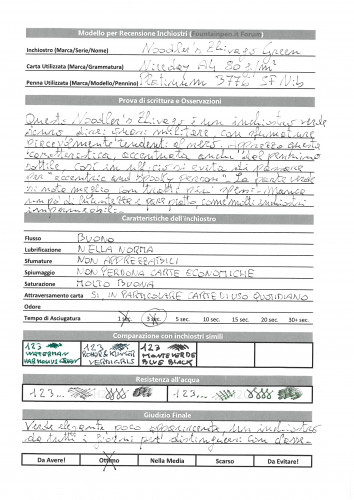 Modello per Recensione Inchiostri (Fountainpen.it Forum)
Inchiostro (Marca/Serie/Nome) Noodler's El Lawrence Green
Carta Utilizzata (Marca/Grammatura) Niceday A4 80 g/m²
Penna Utilizzata (Marca/Modello/Pennino) Platinum 3776 SF Nib
Prova di scrittura e Osservazioni
Questo Noodler's è un inchiostro verde
scuro, direi quasi militare, con sfumature
piacevolmente tendenti al nero, apprezzo questa
caratteristica accentuata anche dal pennino
sottile, così in ufficio si evita di passare
per "eccentric and spooky person". La parte verde
si nota meglio con tratti più spessi. Manca
un po' di però come molti inchiostri
impermeabili.
Caratteristiche dell'inchiostro
Flusso BUONO
Lubrificazione NELLA NORMA
Sfumature NON APPREZZABILI
Spiumaggio NON PERDONA CARTE ECONOMICHE
Saturazione MOLTO BUONA
Attraversamento carta SI IN PARTICOLARE CARTE DI USO QUOTIDIANO
Odore
Tempo di Asciugatura 1 sec. 3 sec. 5 sec. 10 sec. 15 sec. 20 sec. 30+ sec.
Comparazione con inchiostri simili
123 123 123
WATERMAN ROHRER & KLINGNER MONTEVERDE
HARMONIUS GREEN VERDIGRIS BLUE BLACK
Resistenza all'acqua
123... 123...
Giudizio Finale
Verde elegante poco appariscente, un inchiostro
da tutti i giorni per distinguersi con classe.
Da Avere! Ottimo Nella Media Scarso Da Evitare!